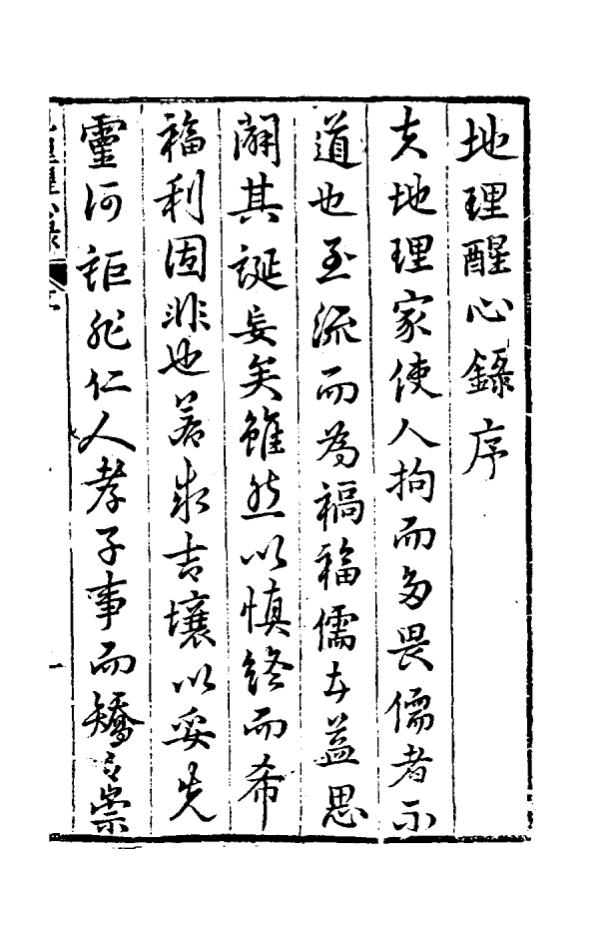 地理醒心錄序
夫地理家使人拘而多畏儒者不
道也至流而為禍福儒士益思
闢其誕妄矣雖然以慎終而希
福利固非也若求吉壤以妥先
靈何詎非仁人孝子事而矯言崇